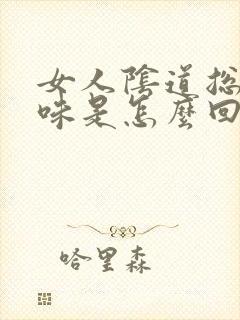 女人陰道總
味是怎麼回
哈里森